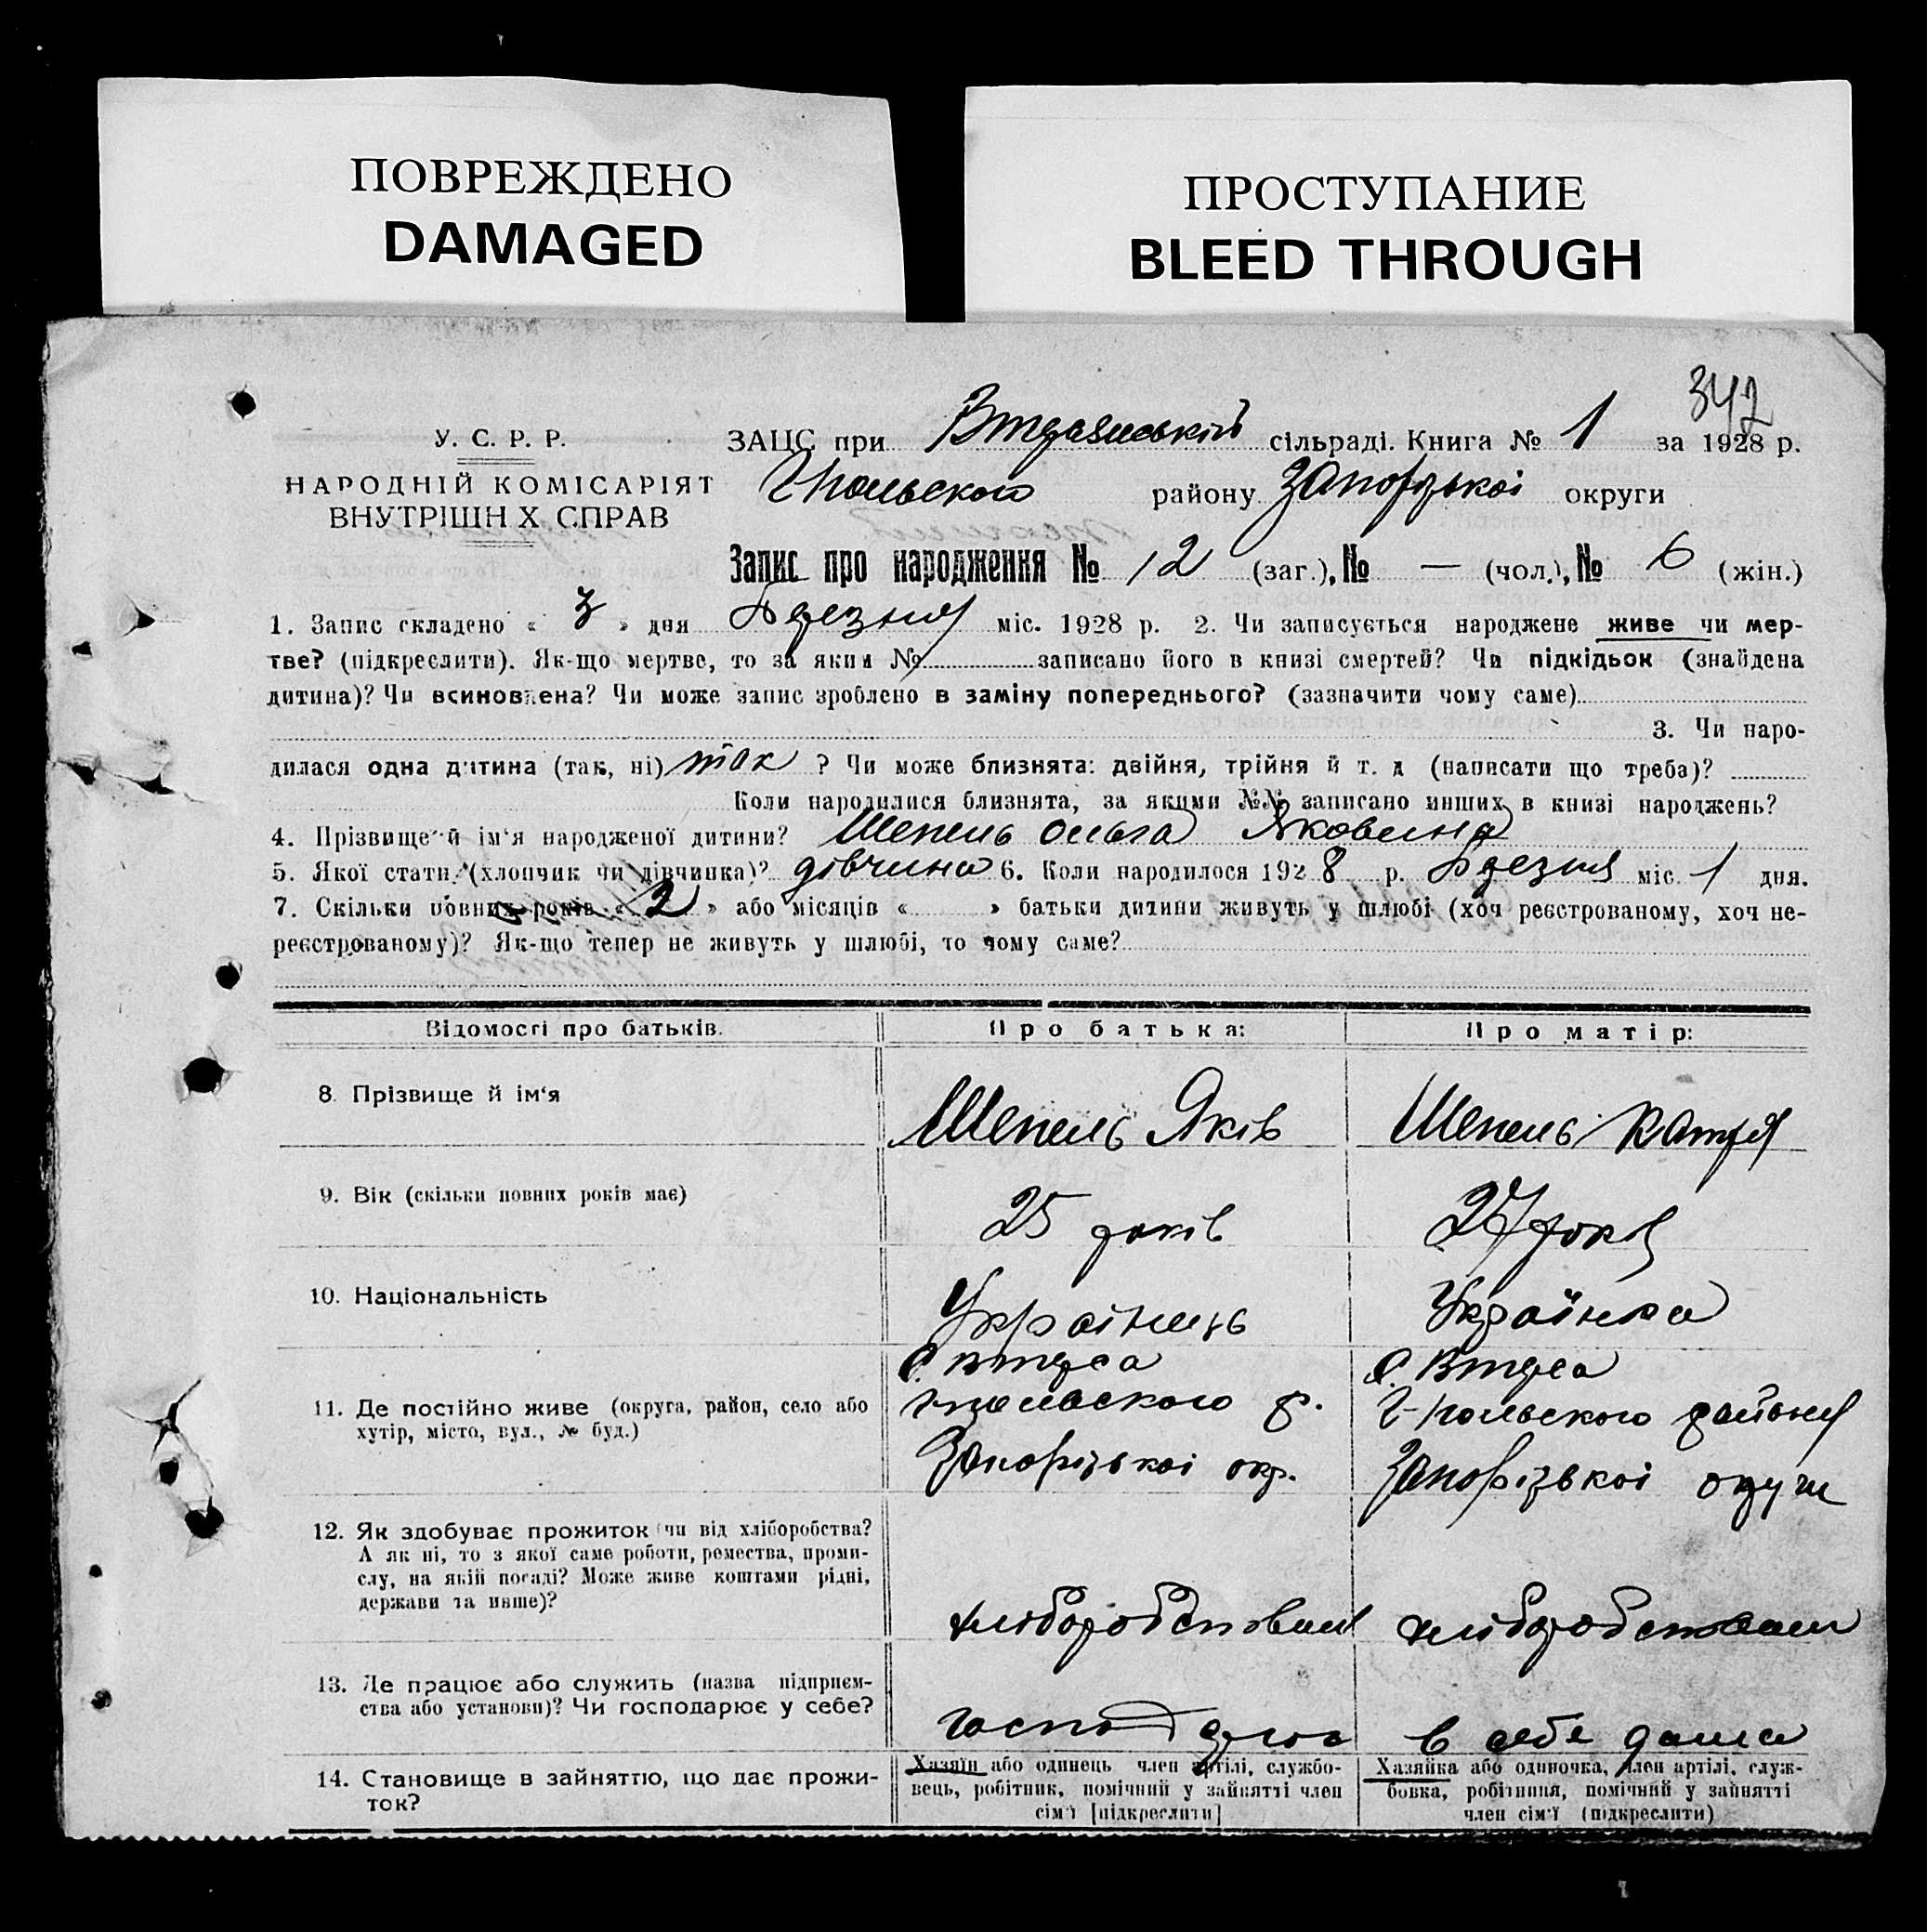 ПОВРЕЖДЕНО
DAMAGED
ПРОСТУПАНИЕ
BLEED THROUGH
342
У. С. Р. Р.
НАРОДНІЙ КОМІСАРІЯТ
ВНУТРІШН Х СПРАВ
ЗАЦС при сільраді. Книга № 1 за 1928 р.
району Запорізької округи
Запис про народження № 12 (заг.), № — (чол.), № 6 (жін.)
1. Запис складено « 3 » дня Березня міс. 1928 р. 2. Чи записується народжене живе чи мер-
тве? (підкреслити). Як-що мертве, то за яким № записано його в книзі смертей? Чи підкідьок (знайдена
дитина)? Чи всиновлена? Чи може запис зроблено в заміну попереднього? (зазначити чому саме)
3. Чи наро-
дилася одна дитина (так, ні) так ? Чи може близнята: двійня, трійня й т. д (написати що треба)?
Коли народилися близнята, за якими №№ записано инших в книзі народжень?
4. Прізвище й ім‘я народженої дитини? Шепель Ольга Яковина
5. Якої стати (хлопчик чи дівчинка)? дівчина 6. Коли народилося 1928 р. Березня міс. 1 дня.
7. Скільки повних років « 2 » або місяців « » батьки дитини живуть у шлюбі (хоч реєстрованому, хоч не-
реєстрованому)? Як-що тепер не живуть у шлюбі, то чому саме?
Відомості про батьків. Про батька: Про матір:
8. Прізвище й ім‘я Шепель Яків Шепель Катря
9. Вік (скільки повних років має) 25 років 27 років
10. Національність Українець Українка
11. Де постійно живе (округа, район, село або
хутір, місто, вул., № буд.)
с. Втрса с. Втрса
р. Г-польского района
Запорізької окр. Запорізької округи
12. Як здобуває прожиток (чи від хліборобства?
А як ні, то з якої саме роботи, ремества, проми-
слу, на якій посаді? Може живе коштами рідні,
держави та инше)?
13. Де працює або служить (назва підприєм-
ства або установи)? Чи господарює у себе?
в себе дома
14. Становище в зайнятію, що дає прожи-
ток?
Хазяїн або одинець член артілі, службо-
вець, робітник, помічний у зайнятті член
сім‘ї [підкреслити]
Хазяйка або одиночка, член артілі, служ-
бовка, робітниця, помічний у зайнятті
член сім‘ї (підкреслити)